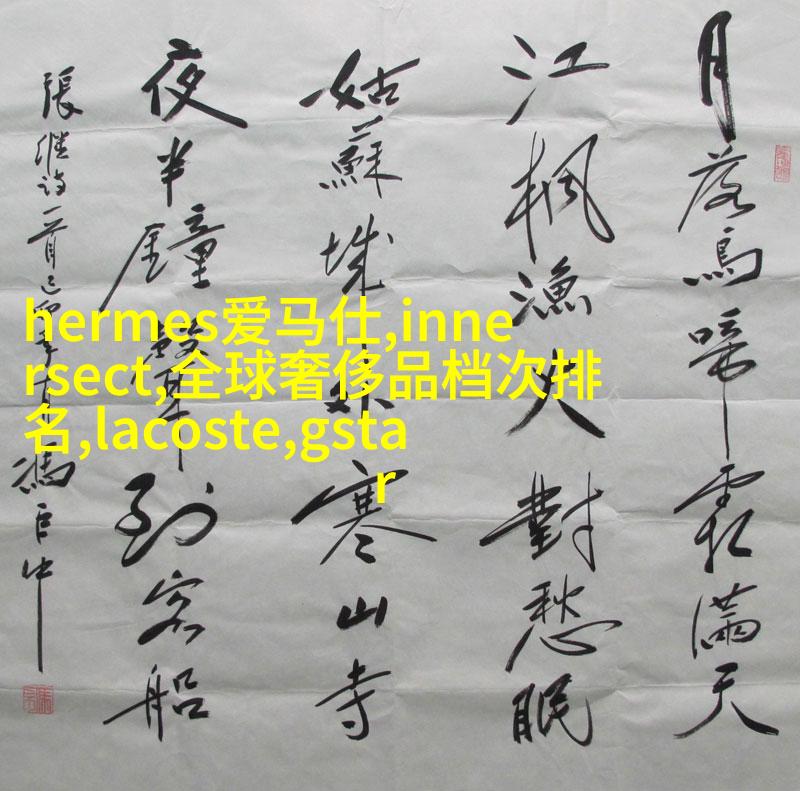 月落烏啼霜滿天
江楓漁火對愁眠
姑蘇城外寒山寺
夜半鐘聲到客船
張繼诗一首
hermes爱马仕,inne
rsect,全球奢侈品档次排
名,lacoste,gsta
r